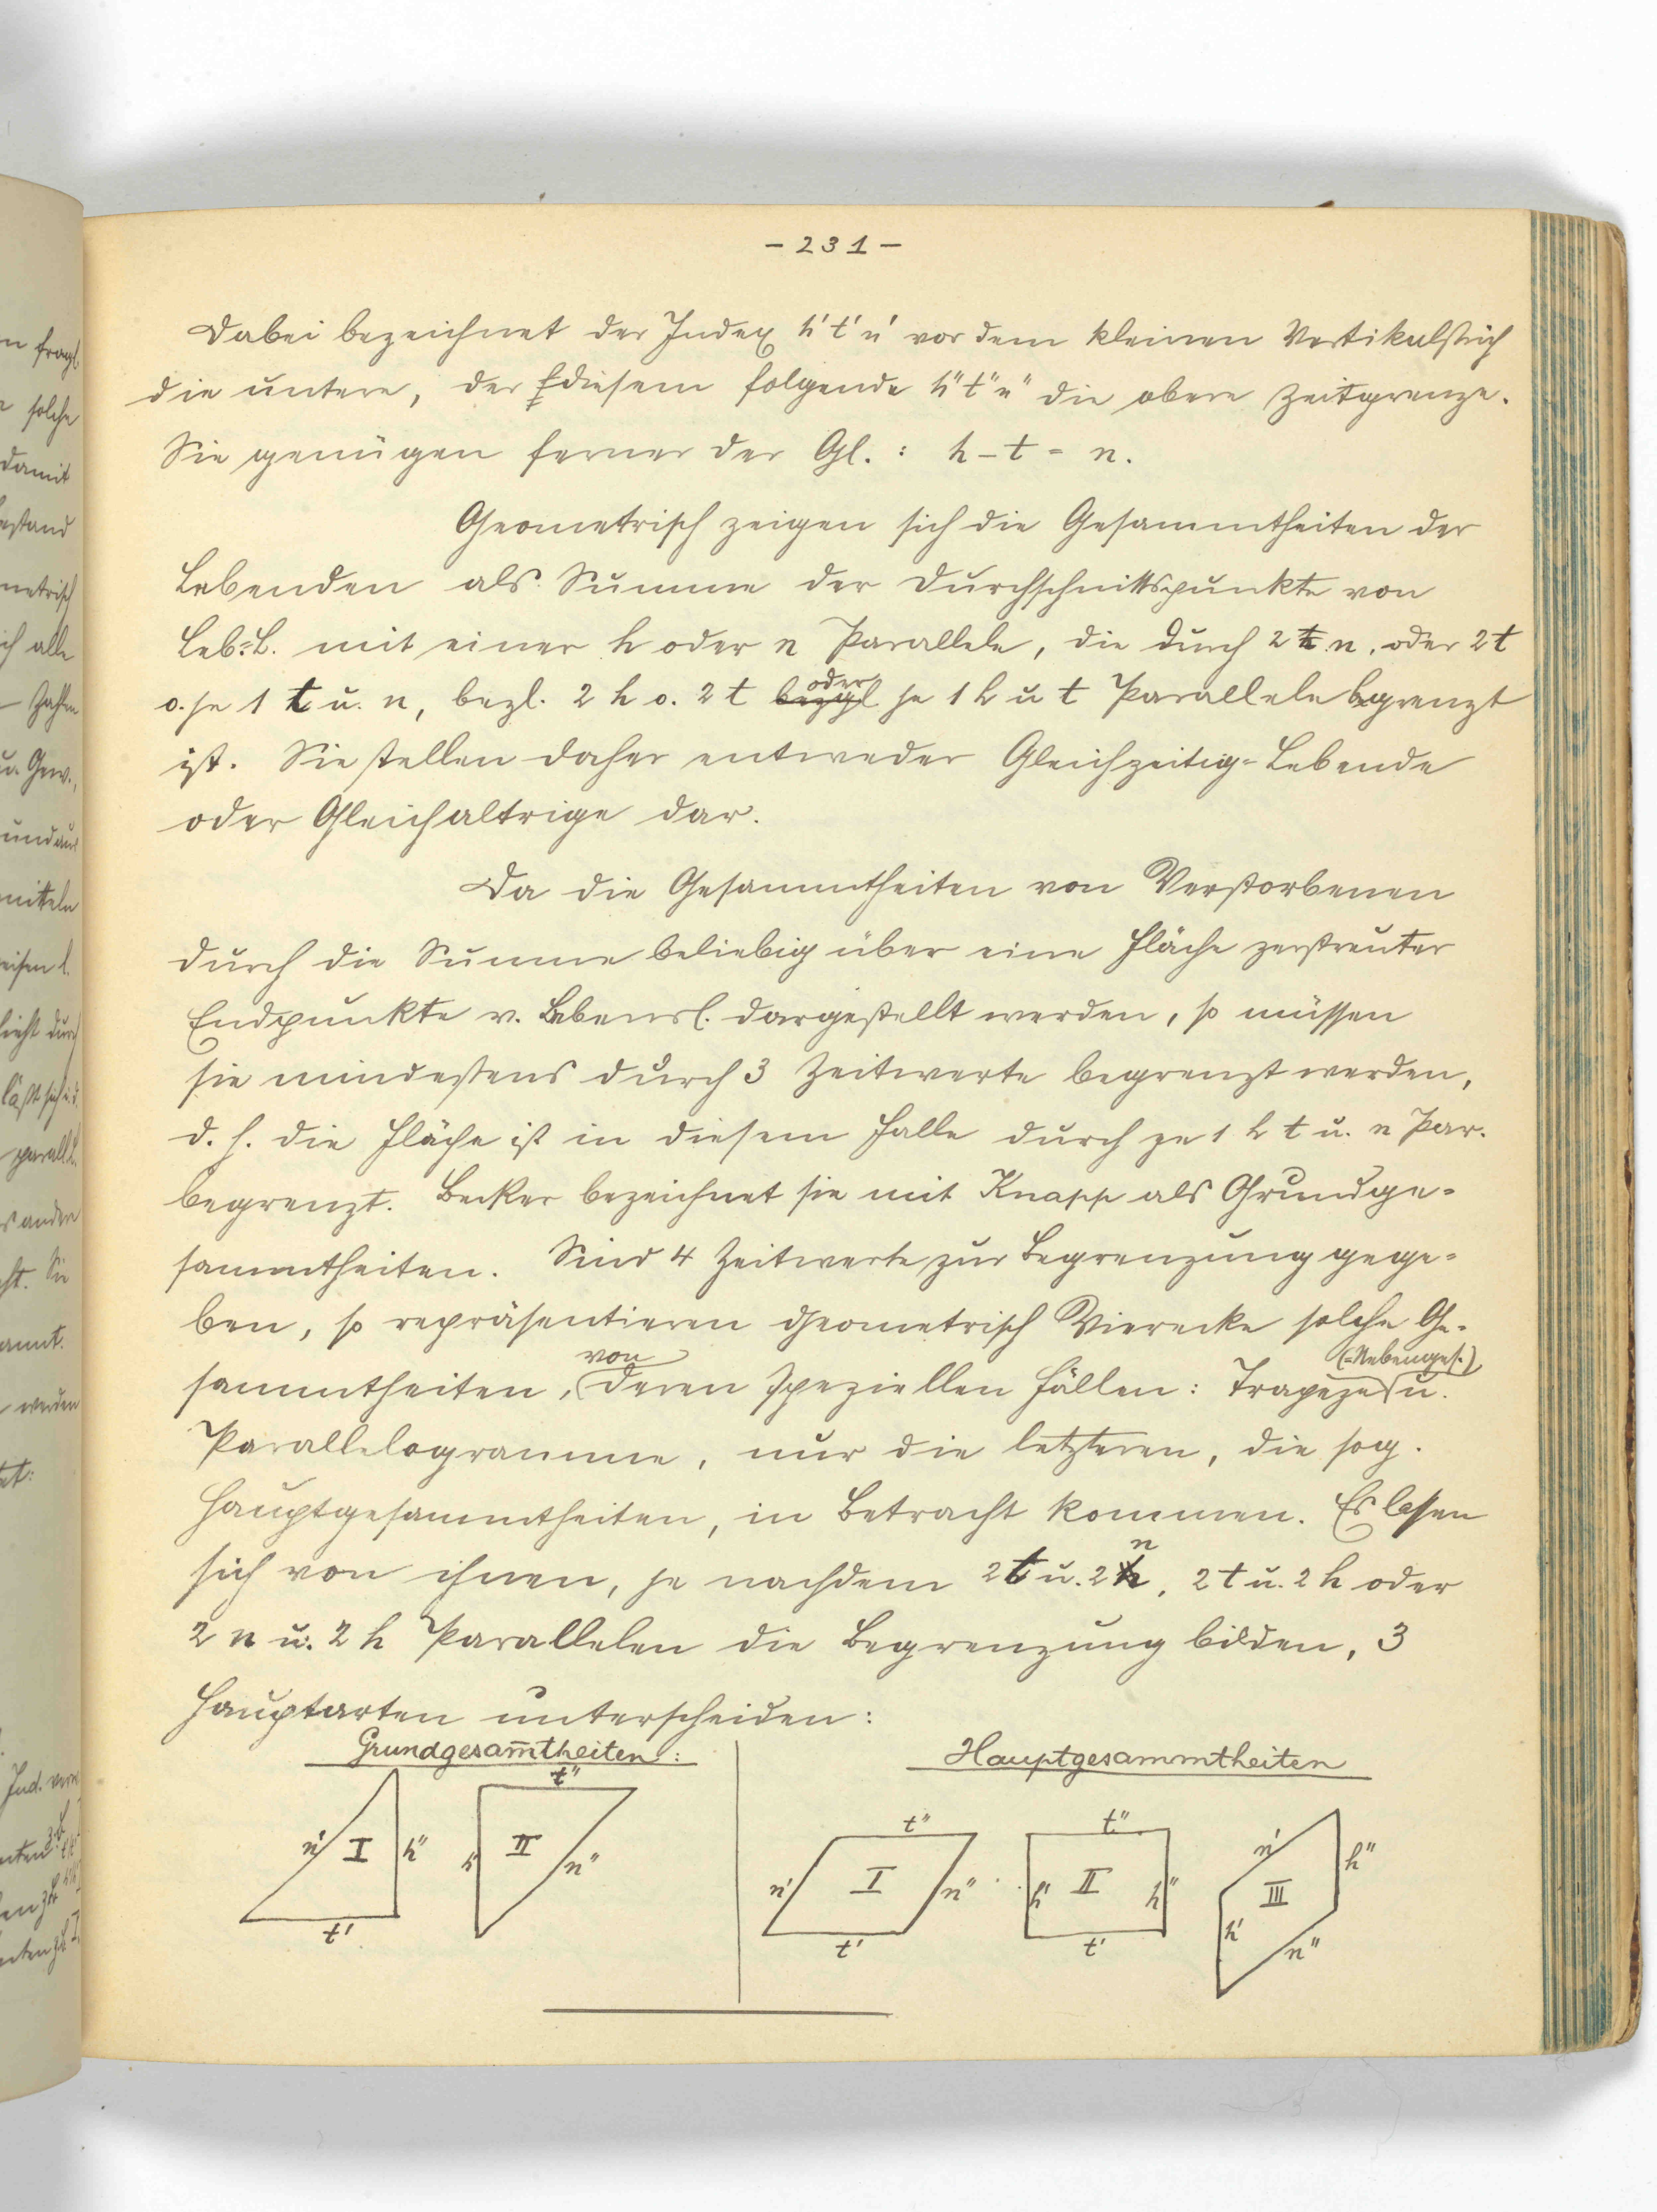 - 231 -
Dabei bezeichnet der Index h' t' n' vor dem kleinen Vertikalstrich
die untere, der diesem folgende h" t" n" die obere Zeitgrenze.
Sie genügen ferner der Gl.: h - t = n.
Geometrisch zeigen sich die Gesammtheiten der
Lebenden als Summe der Durchschnittspunkte von
Leb=L. mit einer h oder n Parallele, die durch 2 n, oder 2 t
o. je 1 t u. n, bezl. 2 h o. 2 t bezgl oder je 1 h u t Parallele begrenzt
ist. Sie stellen daher entweder Gleichzeitig=Lebende
oder Gleichaltrige dar.
Da die Gesammtheiten von Verstorbenen
durch die Summe beliebig über eine Fläche zerstreuter
Endpunkte v. Lebensl. dargestellt werden, so müssen
sie mindestens durch 3 Zeitwerte begrenzt werden,
d. h. die Fläche ist in diesem Falle durch je 1 h t u. n Par.
begrenzt. Becker bezeichnet sie mit Knapp als Grundge=
sammtheiten. Sind 4 Zeitwerte zur Begrenzung gege=
ben, so repräsentieren geometrisch Vierecke solche Ge=
sammtheiten, von deren speziellen Fällen: Trapeze (=Nebenges.) u.
Parallelogramme, nur die letzteren, die sog.
Hauptgesammtheiten, in Betracht kommen. Es lassen
sich von ihnen, je nachdem 2 t u. 2 n, 2 t u. 2 h oder
2 n u. 2 h Parallelen die Begrenzung bilden, 3
Hauptarten unterscheiden:
Grundgesam̅theiten:
n' I h" t'
t" h' II n"
Hauptgesammtheiten
t" n' I n" t'
t" h' II h" t'
n' h" III h' n"